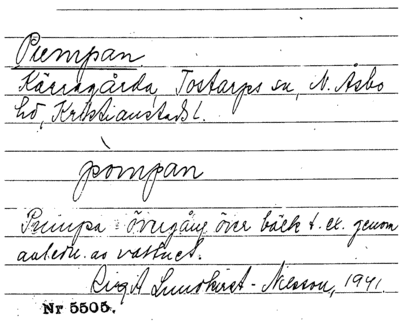 Pumpan
Kärragårda, Tostarps sn, N. Åsbo
hd, Kristianstads l.
pòmpan
Pumpa övergång över bäck t. ex. genom
av vattnet.
Birgit Lundkvist-Nilsson, 1941.
Nr 5505.